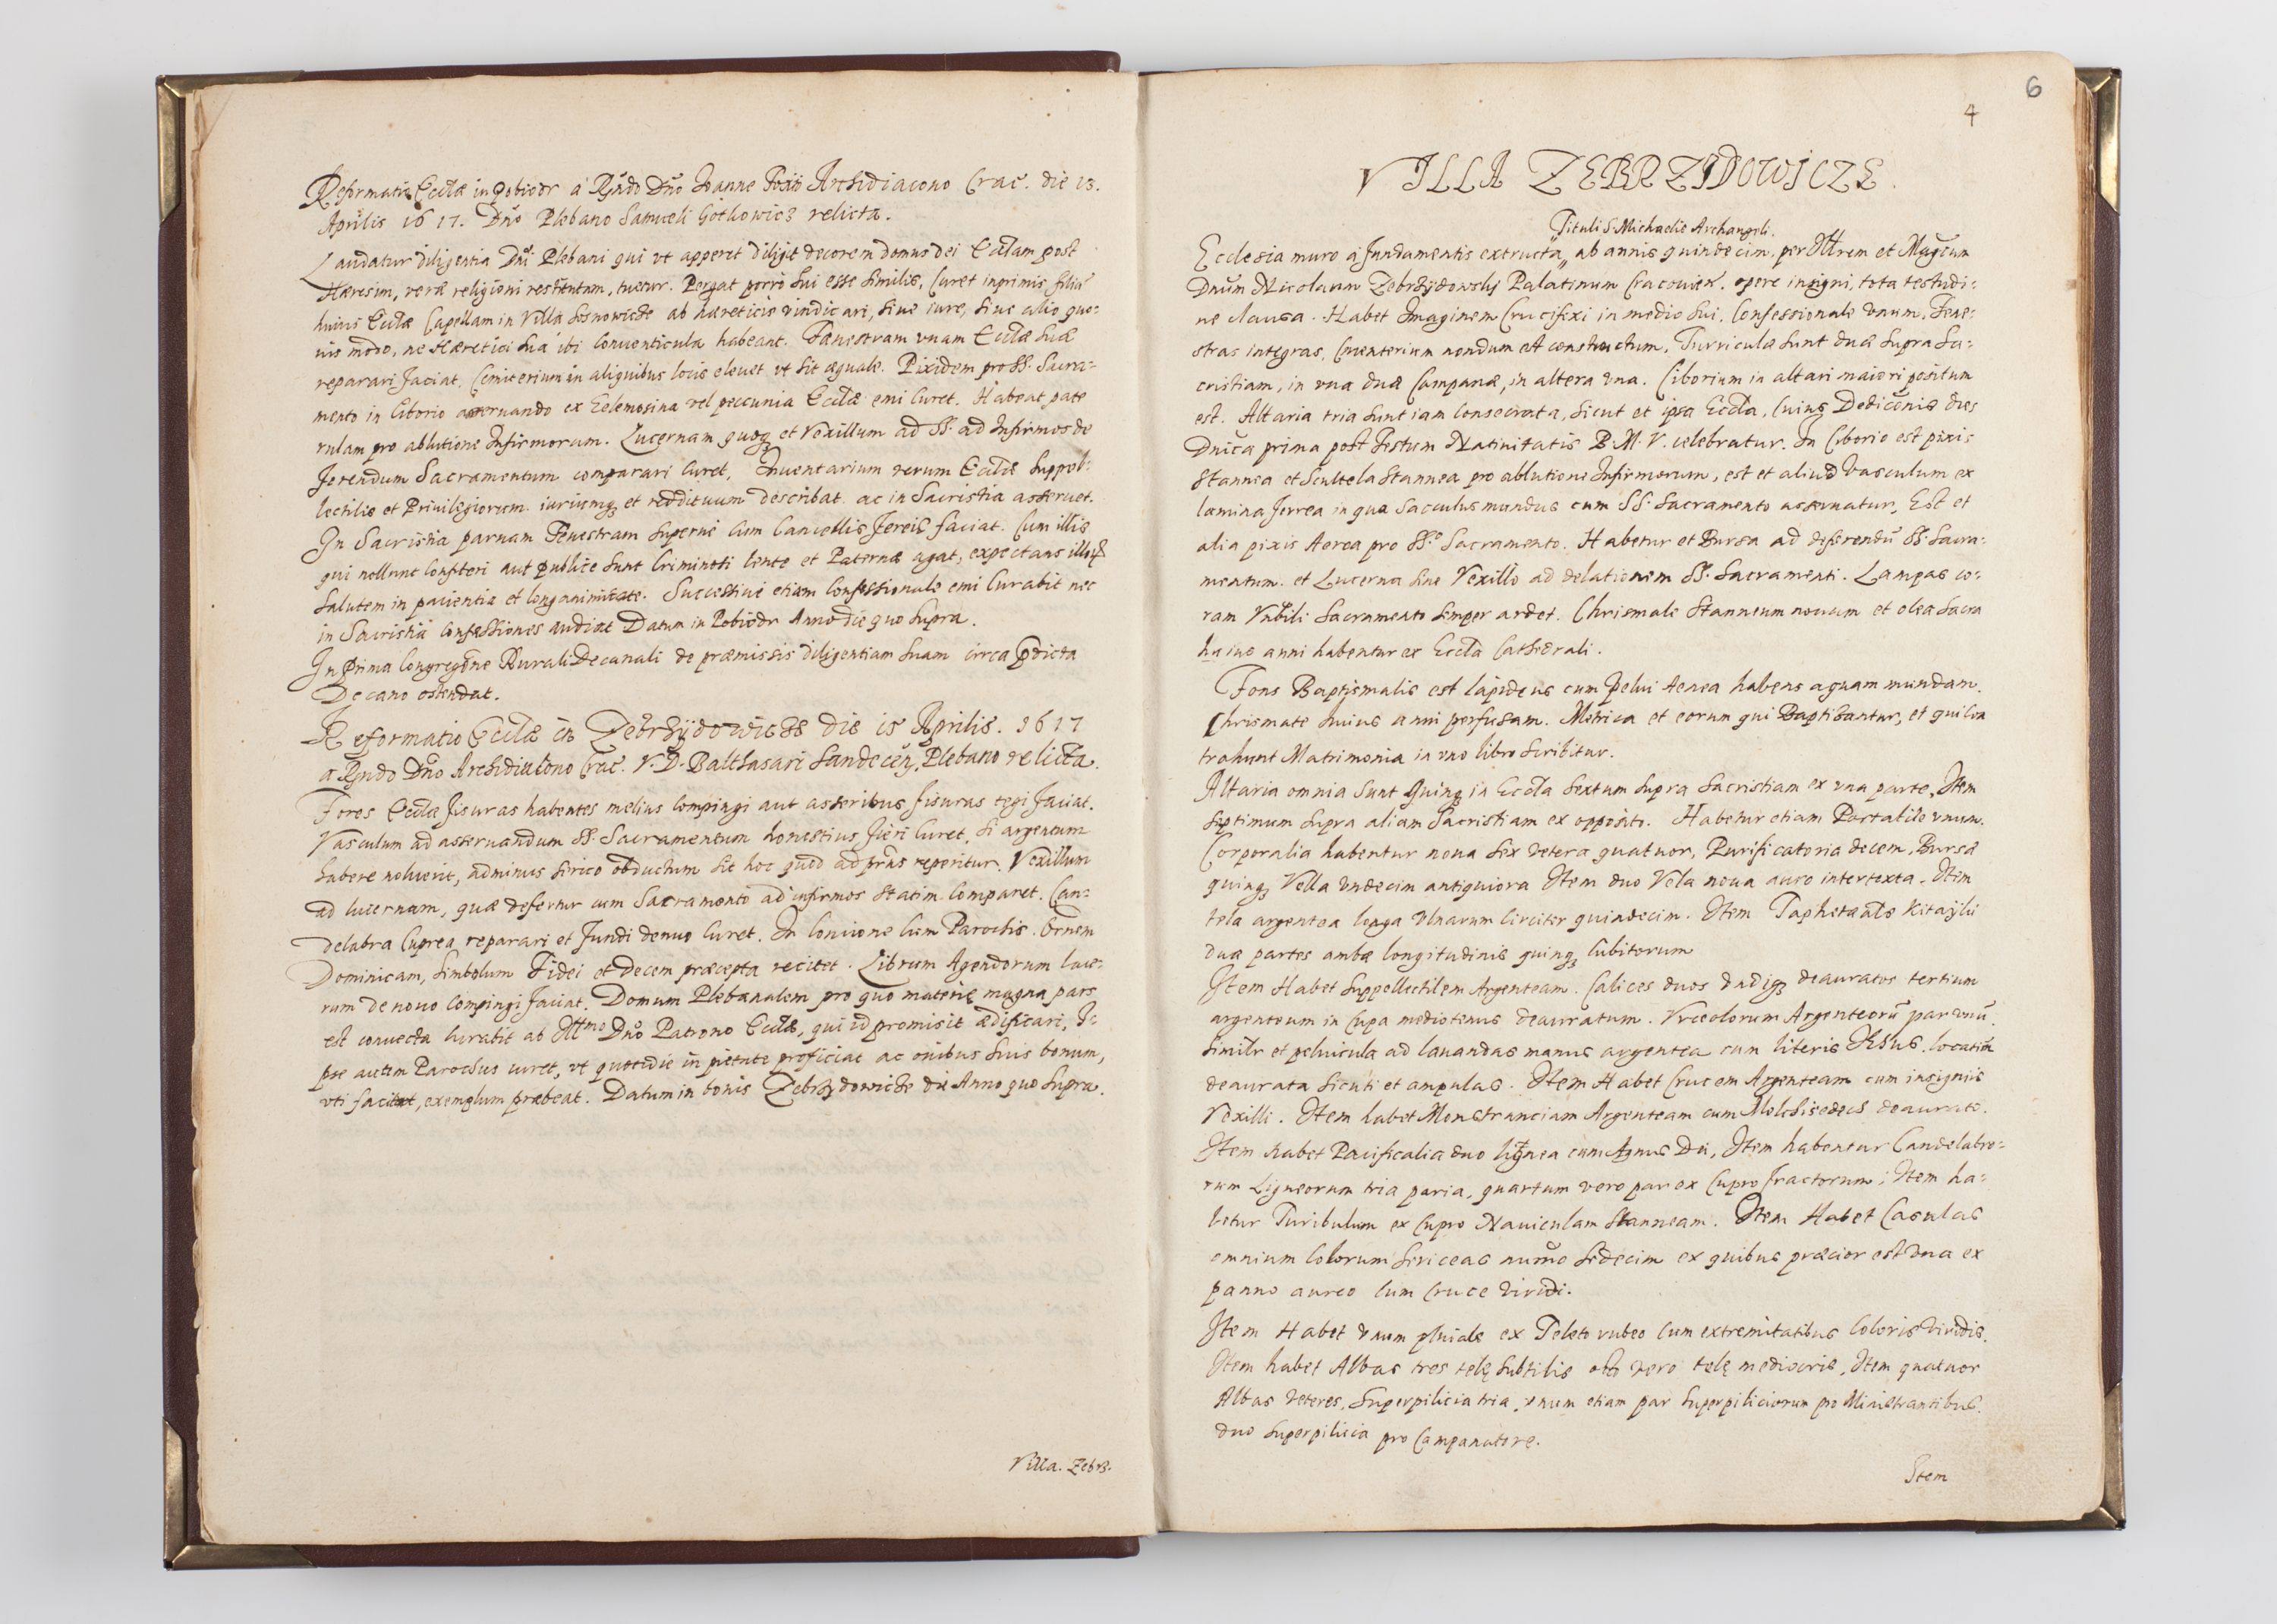 Reformatio Ecclæ in Pobiedr a Rndo Dno Ioanne Foxio Archidiacono Crac. die 13.
Aprilis 1617. Dno Plebano Samueli Gothowicz relicta.
Laudatur diligentia Dni Plebani qui vt apperet diligit decorem domus dei Ecclam post
Hæresim, veræ religioni restitutam, tuetur. Pergat porro sui esse similis, Curet inprimis filia
huius Ecclæ Capellam in Villa Sosnowicze ab hæreticis vindicari, siue iure, siue alio quo-
uis modo, ne Hæretici sua ibi Conuenticula habeant. Fænestram vnam Ecclæ suæ
reparari faciat. Cemiterium in aliquibus locis eleuet vt sit æquale. Pixidem pro SS. Sacra-
mento in Ciborio asseruando ex Eelemosina vel peccunia Ecclæ emi Curet. Habeat pate
rulam pro ablutione Infirmorum. Lucernam quoq et Vexillum ad SS. ad Infirmos de
ferendum Sacramentum comparari Curet, Inuentarium rerum Ecclæ Suppel-
lectilis et Priuilegiorum iuriumq et reddituum describat ac in Sacristia asseruet.
In Sacristia paruam Fenestram superne Cum Cancellis ferreis faciat. Cum illis
qui nollunt Confiteri aut publice sunt Criminosi lente et Paterne agat, expectans
Salutem in pacientia et longanimitate. Successiue etiam Confessionale emi Curabit nec
in Sacristia Confessiones audiat Datum in Pobiedr Anno die quo supra.
In prima Congregone Rurali Decanali de præmissis diligentiam suam circa pdicta
Decano ostendat.
Reformatio Ecclæ in Zebrzydowicze die 15 Aprilis. 1617
a Rndo Dno Archidiacono Crac. V. D. Balthasari Sandecen, Plebano relicta.
Fores Ecclæ fisuras habentes melius Compingi aut asseribus fisuras tegi faciat.
Vasculum ad asseruandum SS. Sacramentum honestius fieri Curet, si argentum
habere noluerit, adminus serico obductum sit hoc quod ad prns reperitur. Vexillum
ad lucernam, quæ defertur cum Sacramento ad infirmos statim Comparet. Can-
delabra Cuprea reparari et fundi denuo Curet. In Concione Cum Parochis Ornem
Dominicam, Simbolum Fidei et Decem præcepta recitet. Librum Agendorum lace-
rum de nouo Compingi faciat. Domum Plebanalem pro quo materię magna pars
est conuecta Curabit ab Illmo Dno Patrono Ecclæ, qui id promisit ædificari, I-
pse autem Parochus curet, vt quotidie in pietate proficiat ac onibus suis bonum,
vti facit, exemplum præbeat. Datum in bonis Zebrzydowicze die Anno quo supra.
Villa. Zebrz.
6
4
VILLA ZEBRZIDOWICZE.
Tituli S. Michaelis Archangeli.
Ecclesia muro a fundamentis extructa ab annis quindecim, per Illtrem et Magcum
Dnum Nicolaum Zebrzydowsky Palatinum Cracouien. opere insigni, tota testudi-
ne clausa. Habet Imaginem Crucifixi in medio sui, Confessionale vnum, Fene-
stras integras, Cmenterium nondum est constructum, Turriculæ sunt duæ supra Sa-
cristiam, in vna duæ Campanæ, in altera vna. Ciborium in altari maiori positum
est. Altaria tria sunt iam Consecrata, sicut et ipsa Eccla, Cuius Dedicōnis dies
Dnica prima post Festum Natiuitatis B. M. V. celebratur. In Ciborio est pixis
Stannea et Scultela Stannea pro ablutione Infirmorum, est et aliud Vasculum ex
lamina ferrea in qua Sacculus mundus cum SS. Sacramento asseruatur, Est et
alia pixis Aerea pro SS.o Sacramento. Habetur et Bursa ad deferendū SS. Sacra-
mentum. et Lucerna sine Vexillo ad delationem SS. Sacramenti. Lampas co-
ram Vnbili Sacramento semper ardet. Chrismale Stanneum nouum et olea Sacra
huius anni habentur ex Eccla Cathedrali.
Fons Baptismalis est lapideus cum pelui Aenea habens aquam mundam,
Chrismate huius anni perfusam. Metrica et eorum qui Baptisantur, et qui Con
trahunt Matrimonia in vno libro scribitur.
Altaria omnia sunt Quinq in Eccla sextum supra Sacristiam ex vna parte, Item
septimum supra aliam Sacristiam ex opposito. Habetur etiam Portatile vnum.
Corporalia habentur noua sex vetera quatuor, Purificatoria decem, Bursæ
quinq Vella vndecim antiquiora Item duo Vela noua auro intertexta. Item
tela argentea longa vlnarum Circiter quindecim. Item Taphetanæ Kitayki
duæ partes ambæ longitudinis quinq Cubitorum
Item Habet Suppellectilem Argenteam. Calices duos vndiq deauratos tertium
argenteum in Cupa mediotenus deauratum. Vrceolorum Argenteorū par vnū.
Similr et peluicula ad lauandas manus argentea cum literis Ihsus. locatim
deaurata sicuti et ampulas. Item Habet Crucem Argenteam cum insignis
Vexilli. Item habet Monstranciam Argenteam cum Melchisedech deaurato.
Item habet Pacificalia duo lignea cum Agnus Dei, Item habentur Candelabro-
rum Ligneorum tria paria, quartum vero par ex Cupro fractorum; Item ha-
betur Turibulum ex Cupro Nauiculam Stanneam. Item Habet Casulas
omnium Colorum sericeas numo sedecim ex quibus præcior est vna ex
panno aureo Cum Cruce Viridi.
Item Habet vnum pluiale ex Teleto rubeo Cum extremitatibus Coloris Viridis.
Item habet Albas tres telę subtilis octo vero telę mediocris, Item quatuor
Albas veteres, Superpilicia tria, vnum etiam par Superpiliciorum pro Ministrantibus.
duo Superpilicia pro Campanatore.
Item